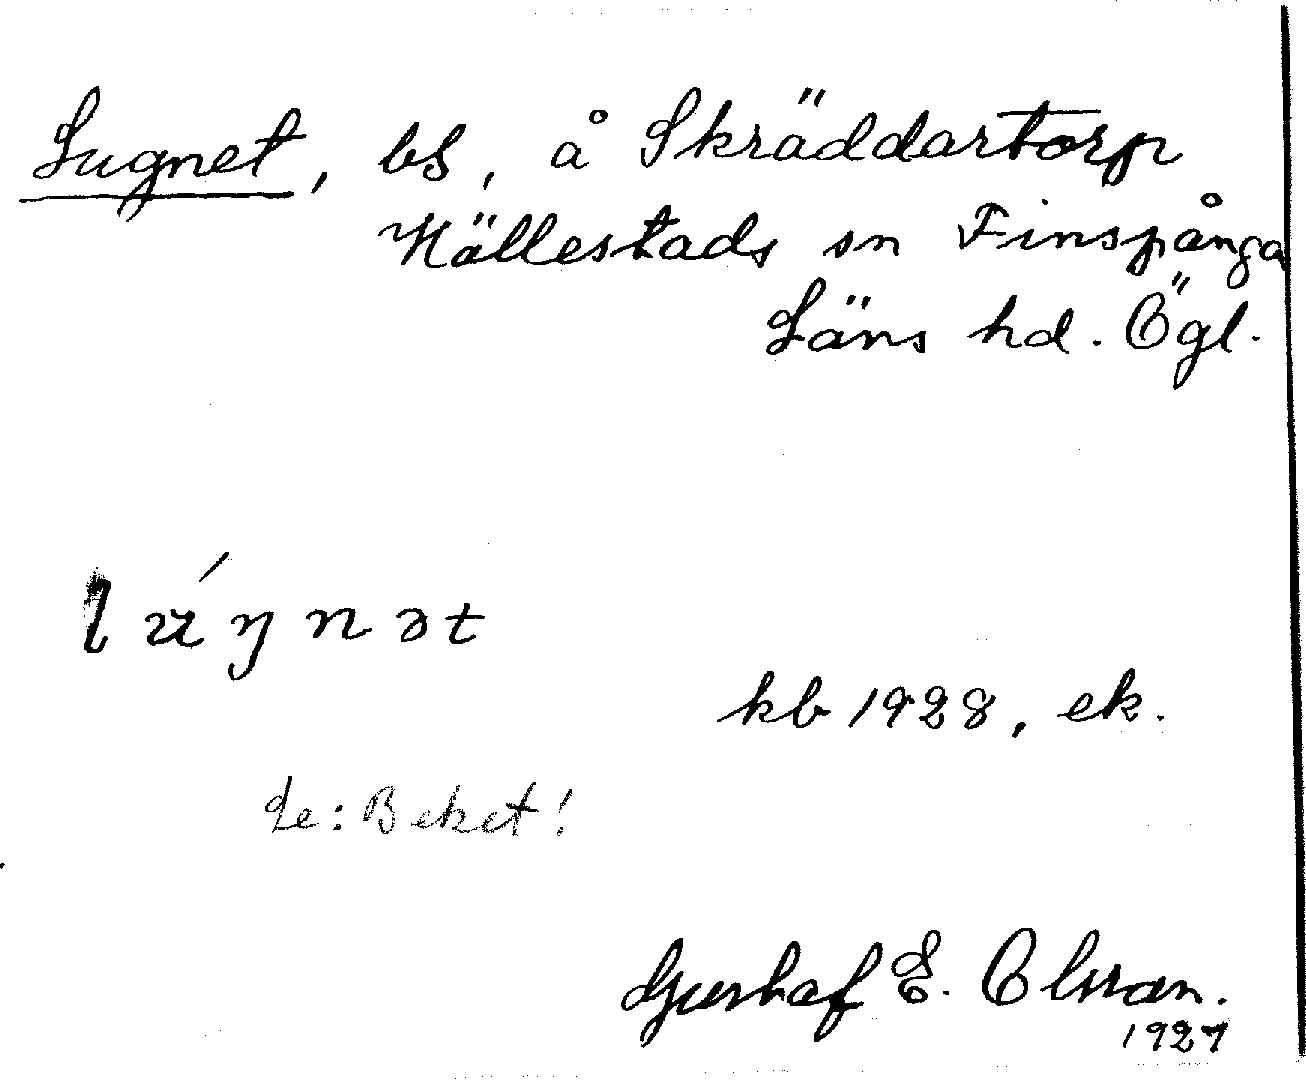 Lugnet, bs, å Skräddartorp
Hällestads sn Finspånga
Läns hd. Ögl.
lúŋnət
kb 1928, ek.
Se: Beket!
Gustaf E. Olsson.
1927